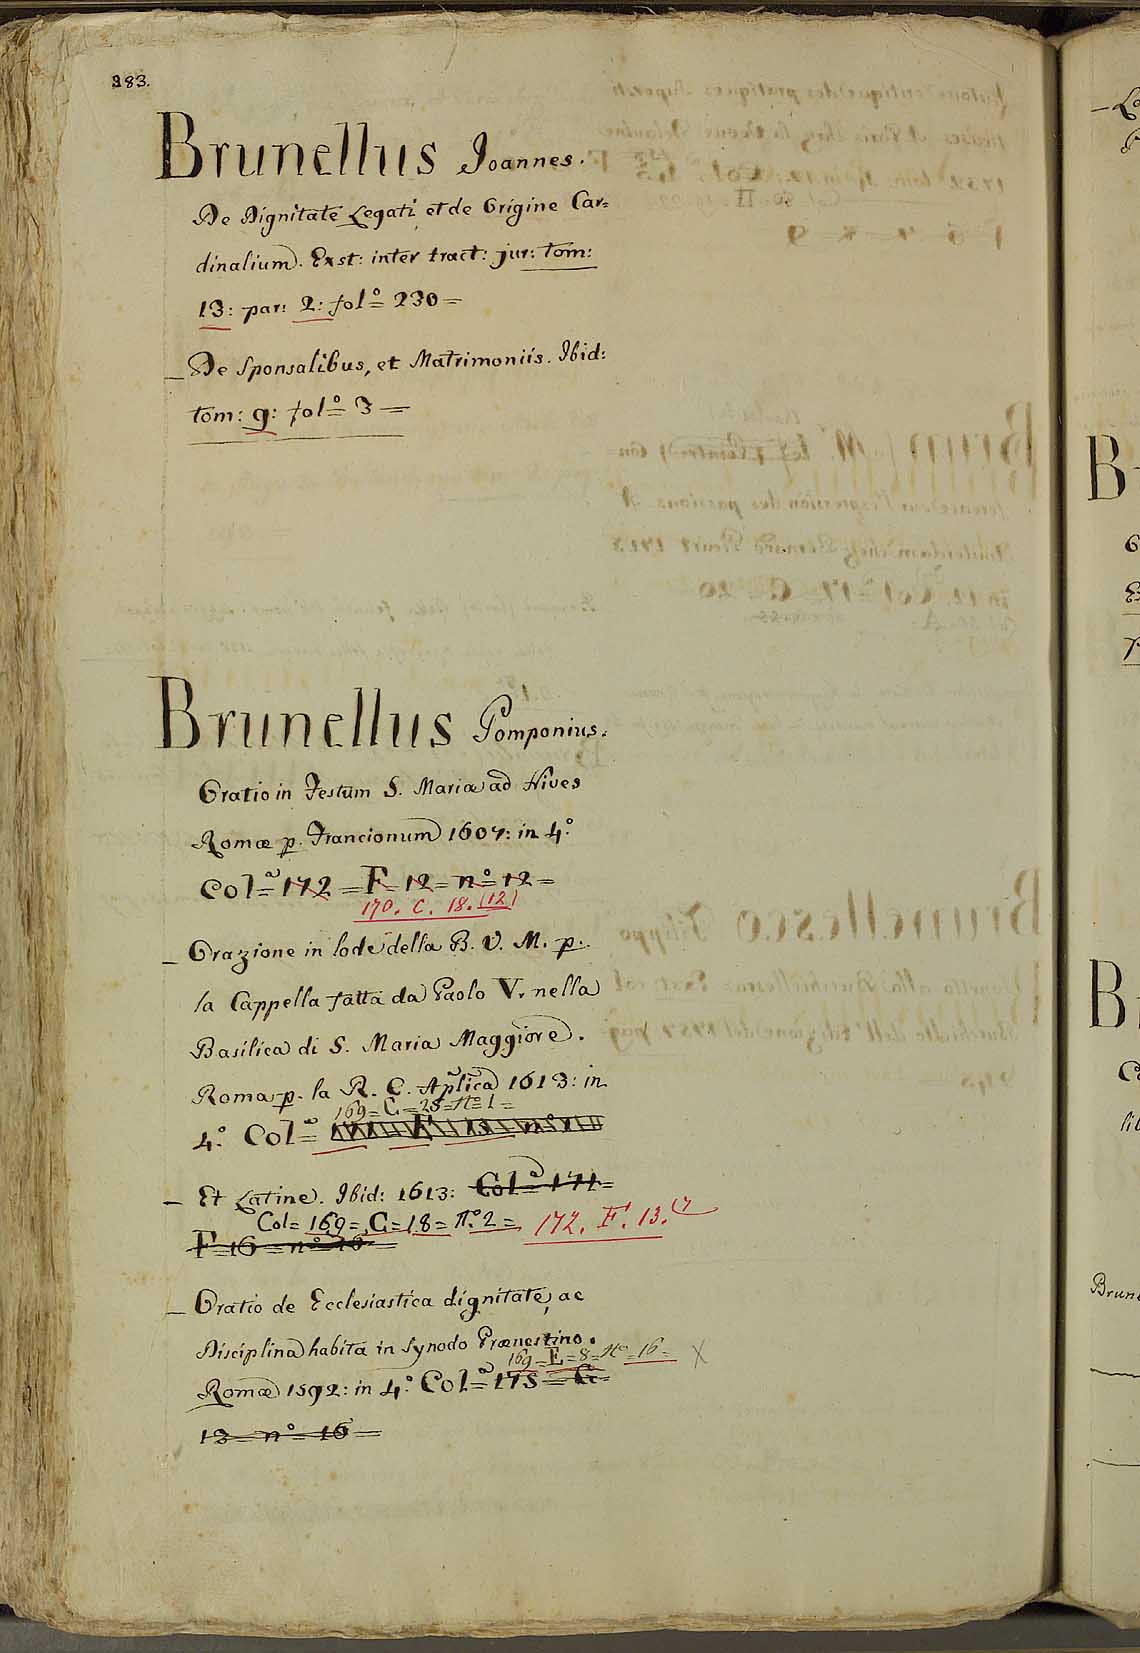 283.
Brunellus Joannes.
De Dignitate Legati, et de Origine Car=
dinalium. Exst: inter tract: jur: tom:
13: par: 2: folº= 230=
_De Sponsalibus, et Matrimoniis. Ibid:
tom: 9: folº= 3 =
Brunellus Pomponius.
Oratio in Festum S. Mariæ ad Nives
Romæ p. Francionum 1607: in 4.º
Colª= 172 = F= 12= nº= 12=
170. C. 18. (12)
_ Orazione in lode della B. V. M. p.
la Cappella fatta da Paolo V. nella
Basilica di S. Maria Maggiore.
Roma p. la R. C. Aplica 1613: in
169= C= 25= Nº= 1=
4.º Colª=
_ Et Latine. Ibid: 1613: Colª= 171=
Col= 169= C= 18= Nº. 2= 172. F. 13. (7
F= 16= nº= 16=
_ Oratio de Ecclesiastica dignitate, ac
Disciplina habita in Synodo Prænestino.
169= E= 8= Nº= 16=
Romæ 1592: in 4.º Colª= 175= G=
13= nº= 16=
B
B
Brun